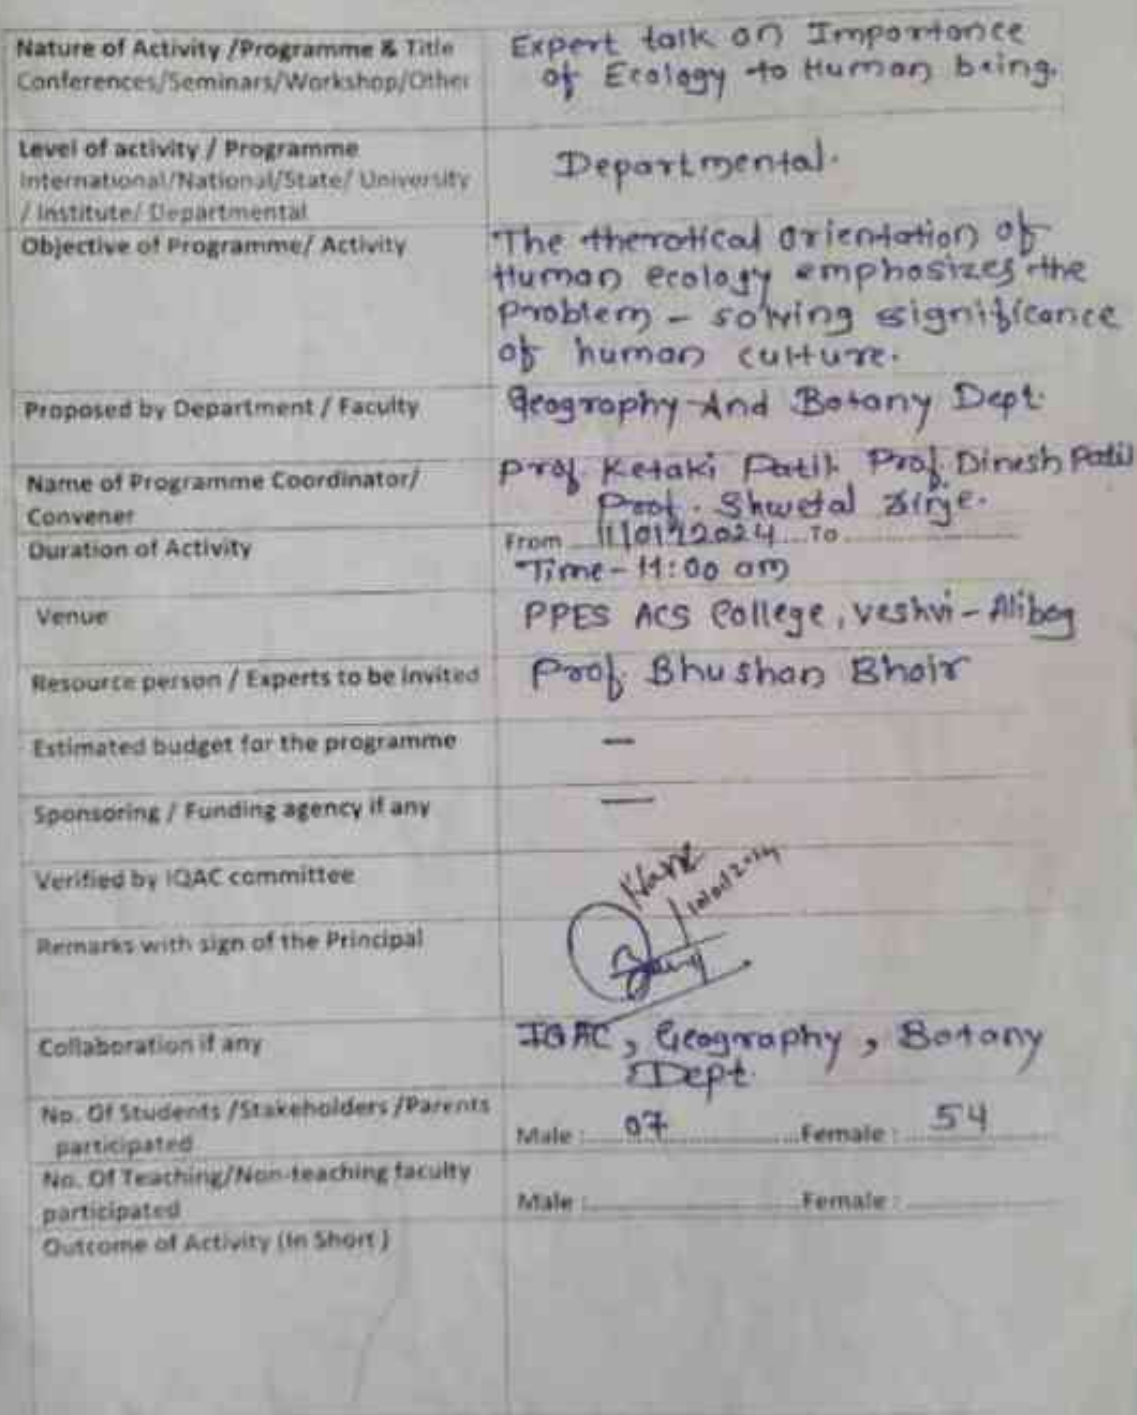 Nature of Activity /Programme & Title
Conferences/Seminars/Workshop/Other
Expert talk on Importance
of Ecology to Human being.
Level of activity / Programme
International/National/State/ University
/ Institute/ Departmental
Departmental.
Objective of Programme/ Activity
The therotical orientation of
Human ecology emphasizes the
Problem - solving significance
of human culture.
Proposed by Department / Faculty
Geography And Botany Dept.
Name of Programme Coordinator/
Convener
Prof. Ketaki Patil Prof. Dinesh Patil
Prof. Shwetal
Duration of Activity
From 11/01/2024 To
Time - 11:00 am
Venue
PPES ACS College, Veshvi - Alibag
Resource person / Experts to be invited
Prof. Bhushan Bhoir
Estimated budget for the programme
—
Sponsoring / Funding agency if any
—
Verified by IQAC committee
Remarks with sign of the Principal
Collaboration if any
IQAC, Geography, Botany
Dept.
No. Of Students /Stakeholders /Parents
participated
Male : 07 Female : 54
No. Of Teaching/Non-teaching faculty
participated
Male : Female :
Outcome of Activity (In Short )